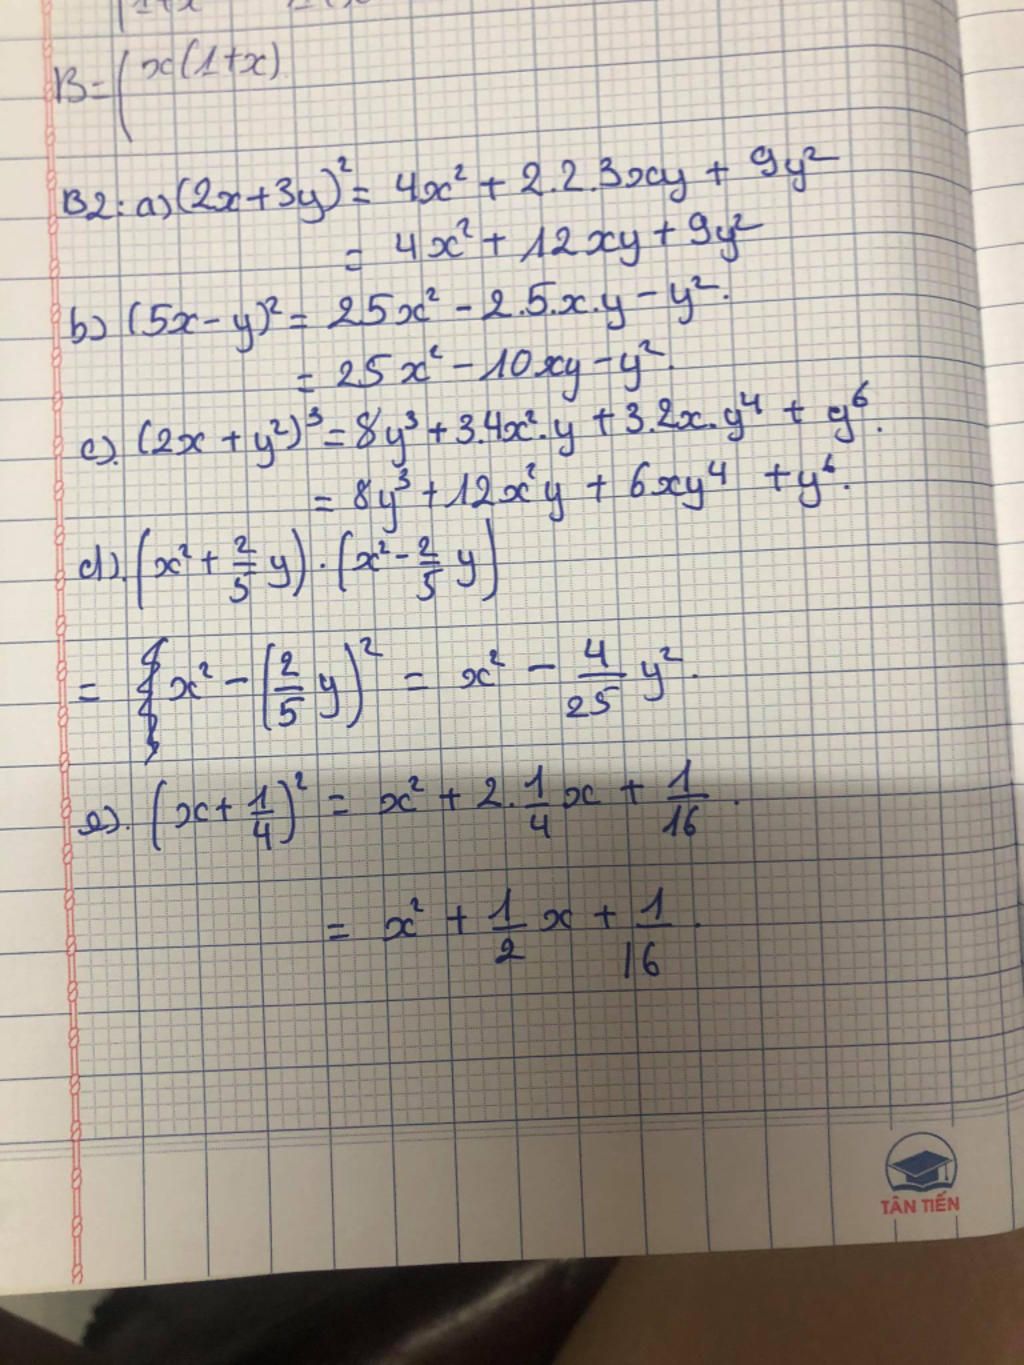 B = ( x(1+x)
B2: a) (2x+3y)² = 4x² + 2.2.3xy + 9y²
= 4x² + 12xy + 9y²
b) (5x-y)² = 25x² - 2.5.x.y - y².
= 25x² - 10xy - y².
c). (2x + y²)³ = 8y³ + 3.4x².y + 3.2x.y⁴ + y⁶.
= 8y³ + 12x²y + 6xy⁴ + y⁶.
d). (x² + 2/5 y) . (x² - 2/5 y)
= x² - (2/5 y)² = x² - 4/25 y².
e). (x + 1/4)² = x² + 2. 1/4 x + 1/16.
= x² + 1/2 x + 1/16.
TÂN TIẾN